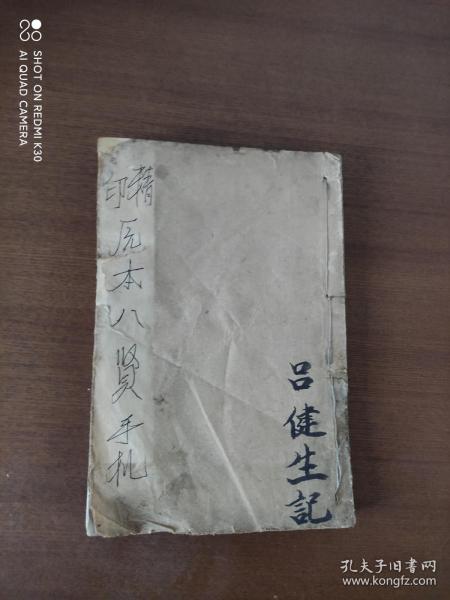 SHOT ON REDMI K30
AI QUAD CAMERA
精印
原本八贤手札
吕健生記
孔夫子旧书网
www.kongfz.com